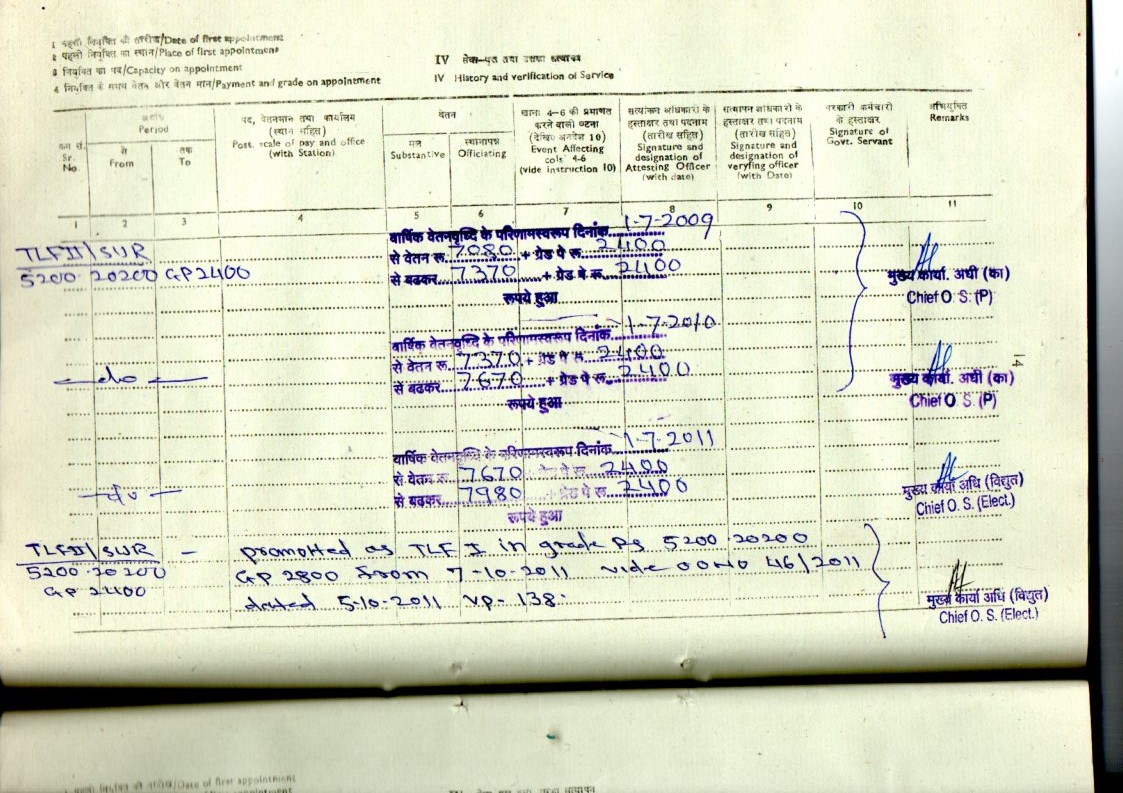 1 पहली नियुक्ति की तारीख/Date of first appointment
2 पहली नियुक्ति का स्थान/Place of first appointment
3 नियुक्ति का पद/Capacity on appointment
4 नियुक्ति के समय वेतन और वेतन मान/Payment and grade on appointment
IV सेवा-वृत्त तथा उसका सत्यापन
IV History and verification of Service
क्रम सं.
Sr.
No.
अवधि
Period
से
From
तक
To
पद, वेतनमान तथा कार्यालय
(स्थान सहित)
Post, scale of pay and office
(with Station)
वेतन
मूल
Substantive
स्थानापन्न
Officiating
खाना 4-6 की प्रभावित
करने वाली घटना
(देखिए अनुदेश 10)
Event Affecting
cols 4-6
(vide instruction 10)
सत्यांकन अधिकारी के
हस्ताक्षर तथा पदनाम
(तारीख सहित)
Signature and
designation of
Attesting Officer
(with date)
सत्यापन अधिकारी के
हस्ताक्षर तथा पदनाम
(तारीख सहित)
Signature and
designation of
veryfing officer
(with Date)
सरकारी कर्मचारी
के हस्ताक्षर
Signature of
Govt. Servant
अभियुक्ति
Remarks
1 2 3 4 5 6 7 8 9 10 11
वार्षिक वेतनवृध्दि के परिणामस्वरूप दिनांक 1-7-2009
TLFII/SUR
से वेतन रू. 7080 + ग्रेड पे रू. 2400
5200-20200 GP2400
से बढकर 7370 + ग्रेड पे रू. 2400
रूपये हुआ
मुख्य कार्या. अधी (का)
Chief O. S. (P)
वार्षिक वेतनवृध्दि के परिणामस्वरूप दिनांक 1-7-2010
से वेतन रू. 7370 + ग्रेड पे रू. 2400
—do—
से बढकर 7670 + ग्रेड पे रू. 2400
रूपये हुआ
मुख्य कार्या. अधी (का)
Chief O. S. (P)
14
वार्षिक वेतनवृध्दि के परिणामस्वरूप दिनांक 1-7-2011
से वेतन रू. 7670 + ग्रेड पे रू. 2400
—do—
से बढकर 7980 + ग्रेड पे रू. 2400
रूपये हुआ
मुख्य कार्या अधि (विद्युत)
Chief O. S. (Elect.)
TLFII/SUR — promotted as TLF I in grade Rs 5200-20200
5200-20200 GP 2800 from 7-10-2011 vide OONO 46/2011
GP 2400
dated 5-10-2011 VP-138.
मुख्य कार्या अधि (विद्युत)
Chief O. S. (Elect.)
Date of first appointment